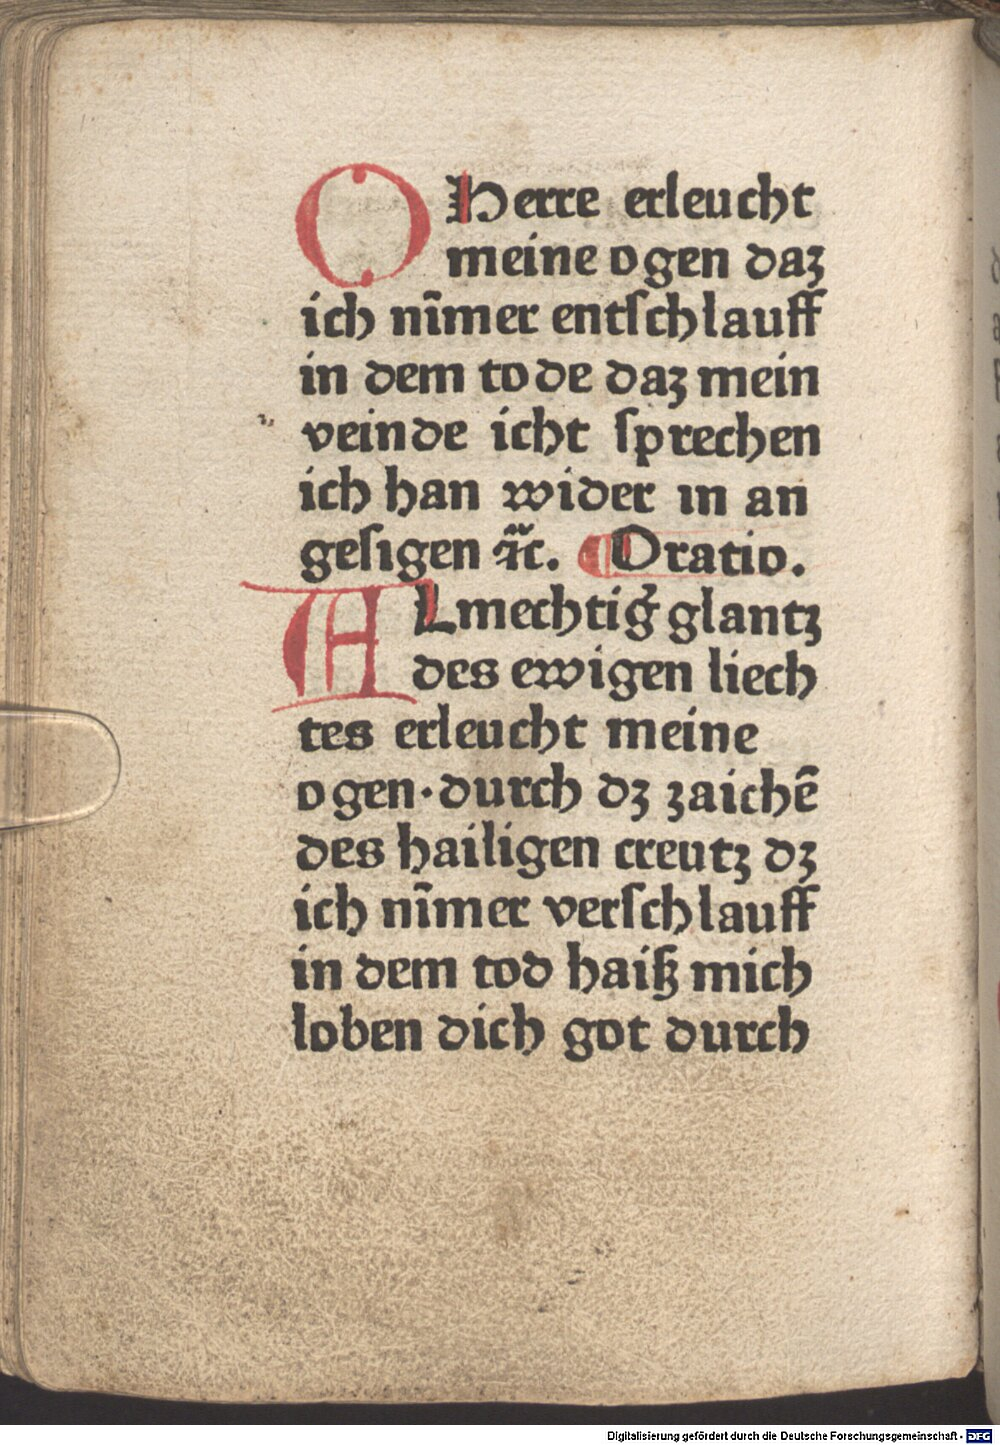 O Herre erleucht
meine ogen daz
ich nim̄er entſchlauff
in dem tode daz mein
veinde icht ſprechen
ich han wider in an
geſigen ⁊c̃. Oratio.
ALmechtig̉ glantz
des ewigen liech
tes erleucht meine
ogen·durch dz zaichē
des hailigen creutz dz
ich nim̄er verſchlauff
in dem tod haiß mich
loben dich got durch
Digitalisierung gefördert durch die Deutsche Forschungsgemeinschaft - DFG